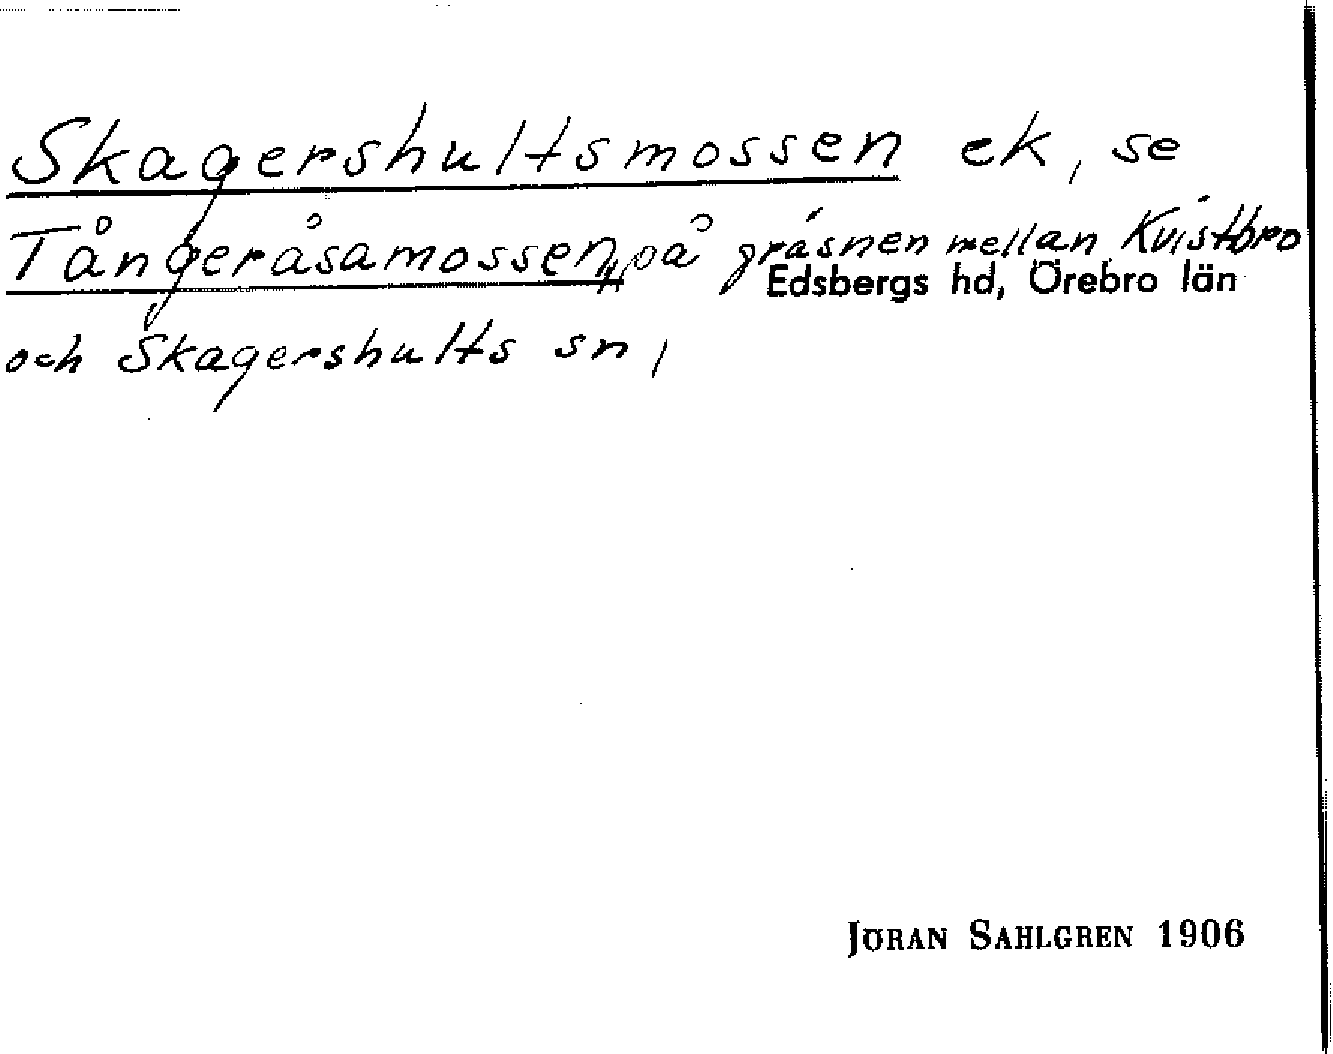 Skagershultsmossen ek, se
Tångeråsamossen, på gräsnen mellan Kvistbro
Edsbergs hd, Örebro län
och Skagershults sn,
JÖRAN SAHLGREN 1906